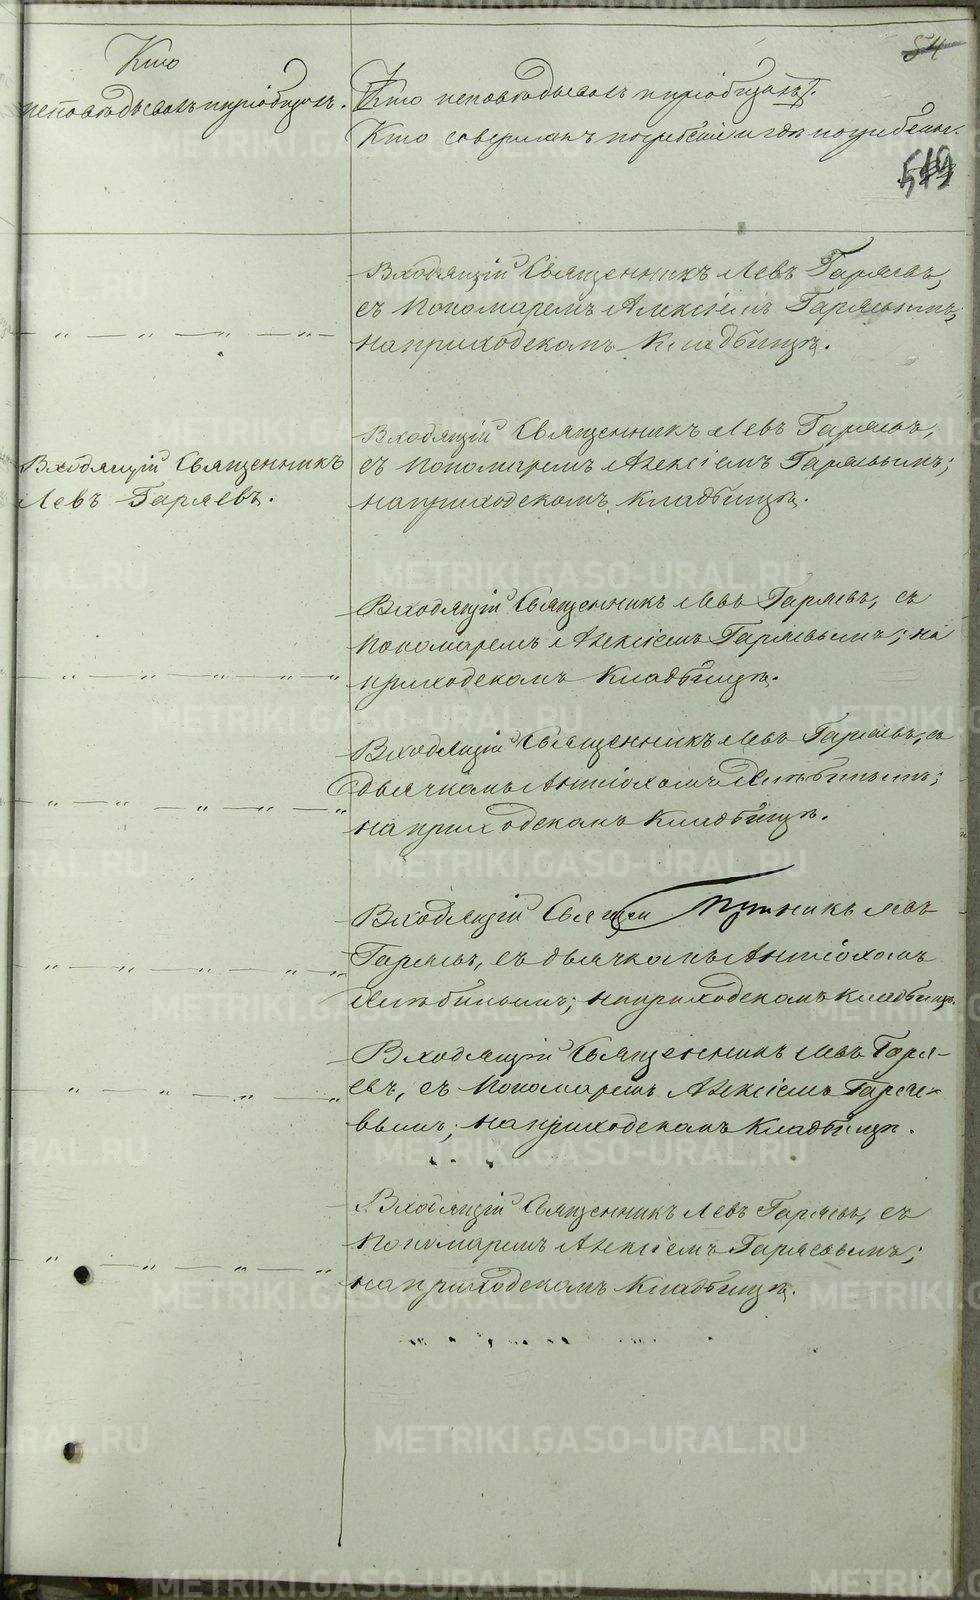 54
Кто
исповѣдывалъ и пріобщалъ.
Кто исповѣдывалъ и пріобщалъ.
Кто совершалъ погребеніе и гдѣ погребены.
519
Входящій Священникъ Левъ Гаряевъ,
съ Пономаремъ Алексіемъ Гаряевымъ;
на приходскомъ Кладбищѣ.
Входящій Священникъ
Левъ Гаряевъ.
Входящій Священникъ Левъ Гаряевъ,
съ Пономаремъ Алексіемъ Гаряевымъ;
на приходскомъ кладбищѣ.
Входящій Священникъ Левъ Гаряевъ, съ
Пономаремъ Алексіемъ Гаряевымъ; на
приходскомъ Кладбищѣ.
Входящій Священникъ Левъ Гаряевъ, съ
дьячкомъ Антіохомъ
на приходскомъ Кладбищѣ.
Входящій Священникъ Левъ
Гаряевъ, съ дьячкомъ Антіохомъ
на приходскомъ кладбищѣ.
Входящій Священникъ Левъ Гаря-
евъ, съ Пономаремъ Алексіемъ Гаряе-
вымъ; на приходскомъ Кладбищѣ.
Входящій Священникъ Левъ Гаряевъ, съ
Пономаремъ Алексіемъ Гаряевымъ;
на приходскомъ Кладбищѣ.
METRIKI.GASO-URAL.RU